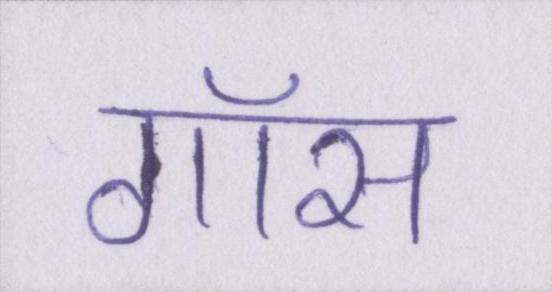 गॉस